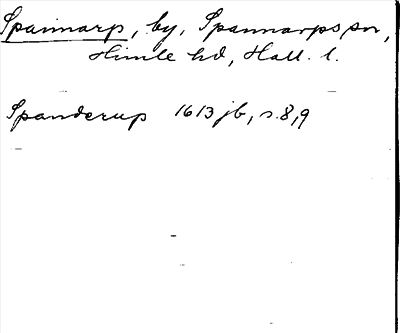 Spannarp, by, Spannarps sn,
Himle hd, Hall. l.
Spanderup 1613 jb, s. 8, 9